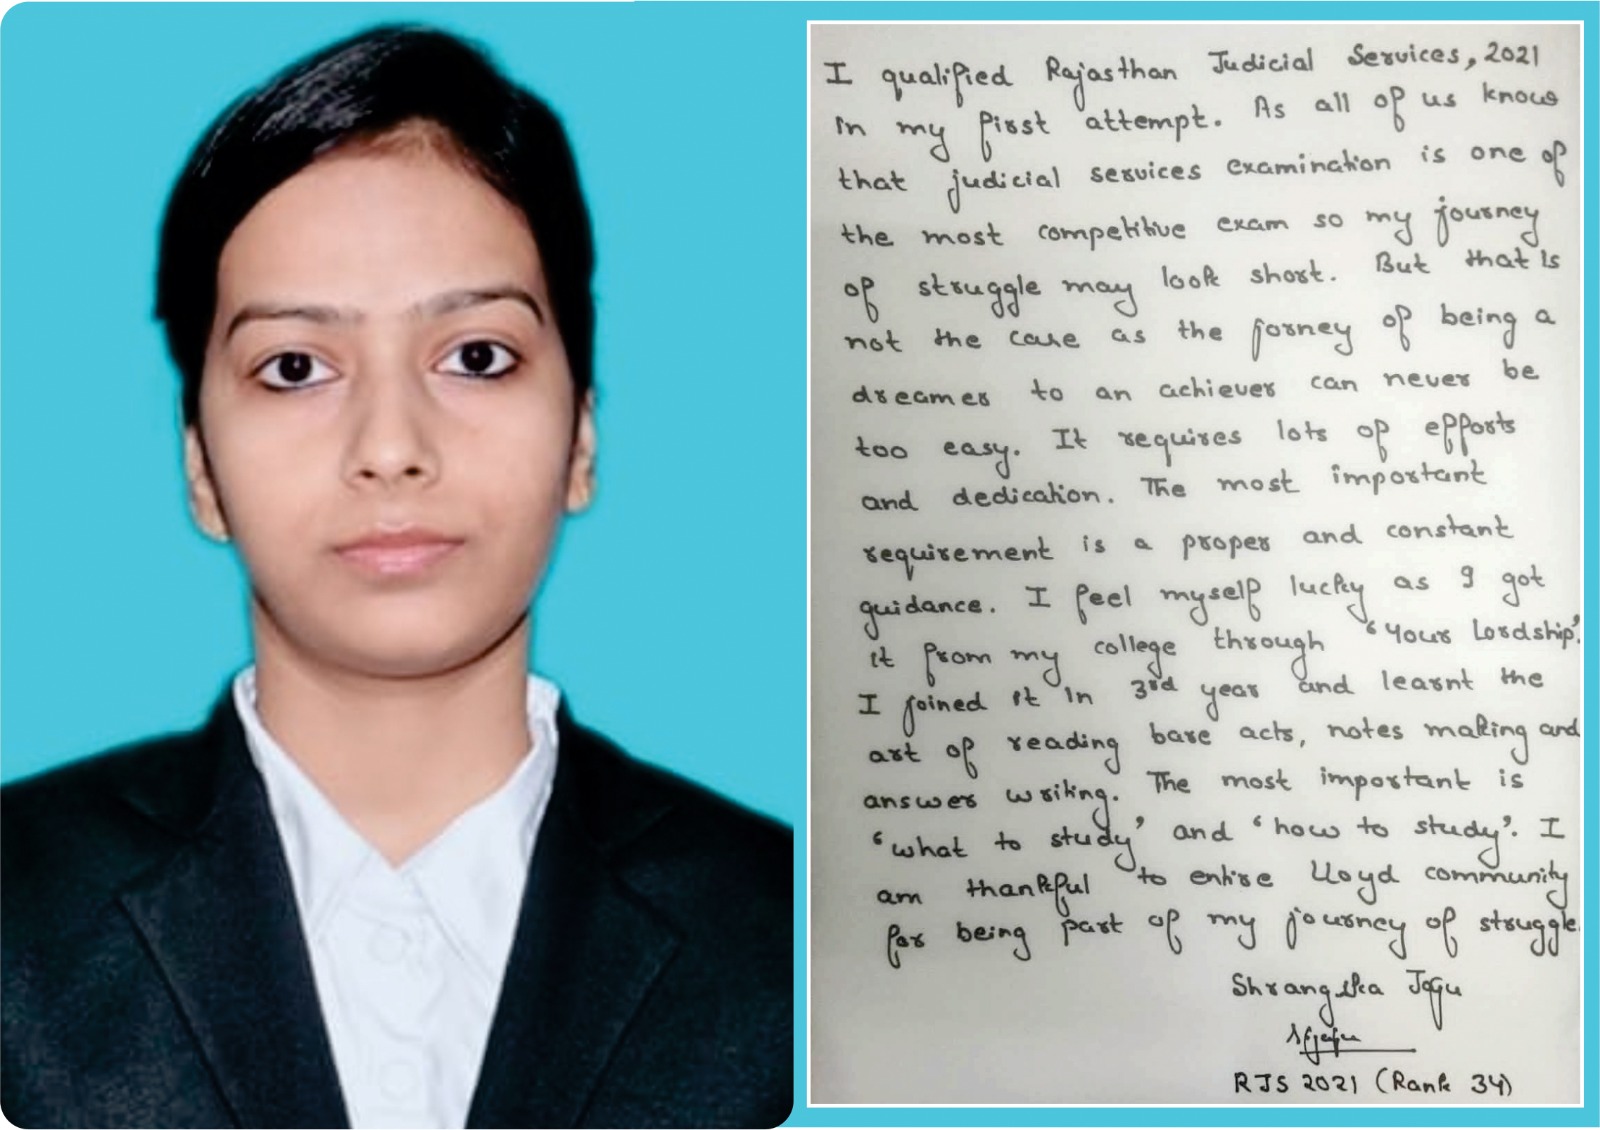 I qualified Rajasthan Judicial Services, 2021
in my first attempt. As all of us know
that judicial services examination is one of
the most competitive exam so my journey
of struggle may look short. But that is
not the case as the jorney of being a
dreamer to an achiever can never be
too easy. It requires lots of efforts
and dedication. The most important
requirement is a proper and constant
guidance. I feel myself lucky as I got
it from my college through 'Your Lordship'.
I joined it in 3rd year and learnt the
art of reading bare acts, notes making and
answer writing. The most important is
'what to study' and 'how to study'. I
am thankful to entire Lloyd community
for being part of my journey of struggle.
Shrangika Jaju
RJS 2021 (Rank 34)